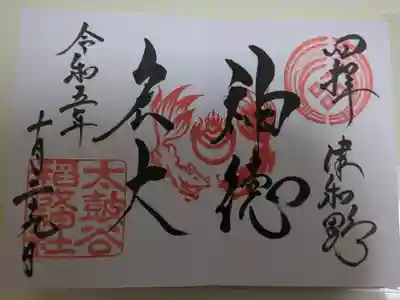 拝 津和野
神徳
宏大
令和五年
十月二十九日
太皷谷
稲成神社